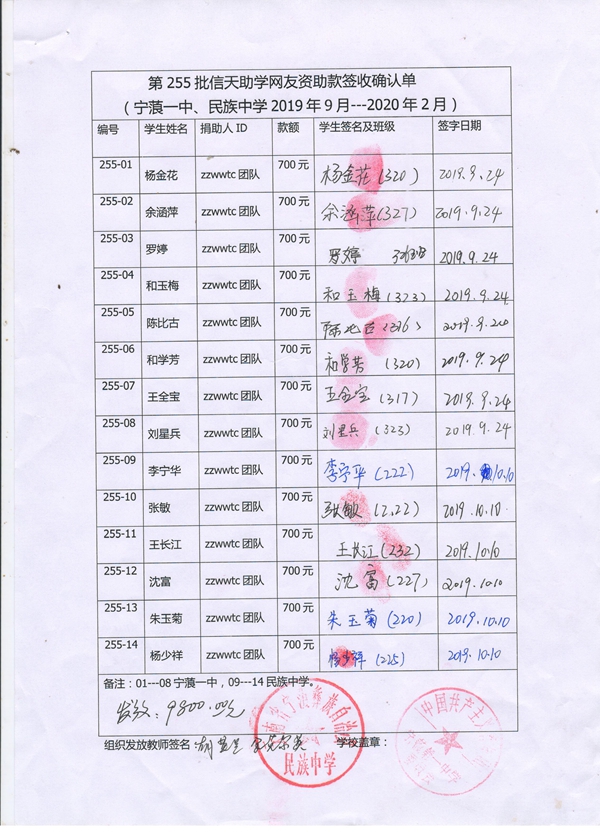 第 255 批信天助学网友资助款签收确认单
（宁蒗一中、民族中学 2019 年 9 月---2020 年 2 月）
编号 学生姓名 捐助人 ID 款额 学生签名及班级 签字日期
255-01 杨金花 zzwwtc 团队 700 元 杨金花(320) 2019.9.24
255-02 余涵萍 zzwwtc 团队 700 元 余涵萍(327) 2019.9.24
255-03 罗婷 zzwwtc 团队 700 元 罗婷 2019.9.24
255-04 和玉梅 zzwwtc 团队 700 元 和玉梅(323) 2019.9.24
255-05 陈比古 zzwwtc 团队 700 元 陈比古(316) 2019.9.24
255-06 和学芳 zzwwtc 团队 700 元 和学芳(320) 2019.9.24
255-07 王全宝 zzwwtc 团队 700 元 王全宝(317) 2019.9.24
255-08 刘星兵 zzwwtc 团队 700 元 刘星兵(323) 2019.9.24
255-09 李宁华 zzwwtc 团队 700 元 李宁华(222) 2019.10.10
255-10 张敏 zzwwtc 团队 700 元 张敏(222) 2019.10.10.
255-11 王长江 zzwwtc 团队 700 元 王长江(232) 2019.10.10
255-12 沈富 zzwwtc 团队 700 元 沈富(227) 2019.10.10
255-13 朱玉菊 zzwwtc 团队 700 元 朱玉菊(220) 2019.10.10
255-14 杨少祥 zzwwtc 团队 700 元 杨少祥(225) 2019.10.10
备注：01---08 宁蒗一中，09---14 民族中学。
发放：9800.00元
组织发放教师签名： 学校盖章：
南省宁蒗彝族自治
民族中学
中国共产主